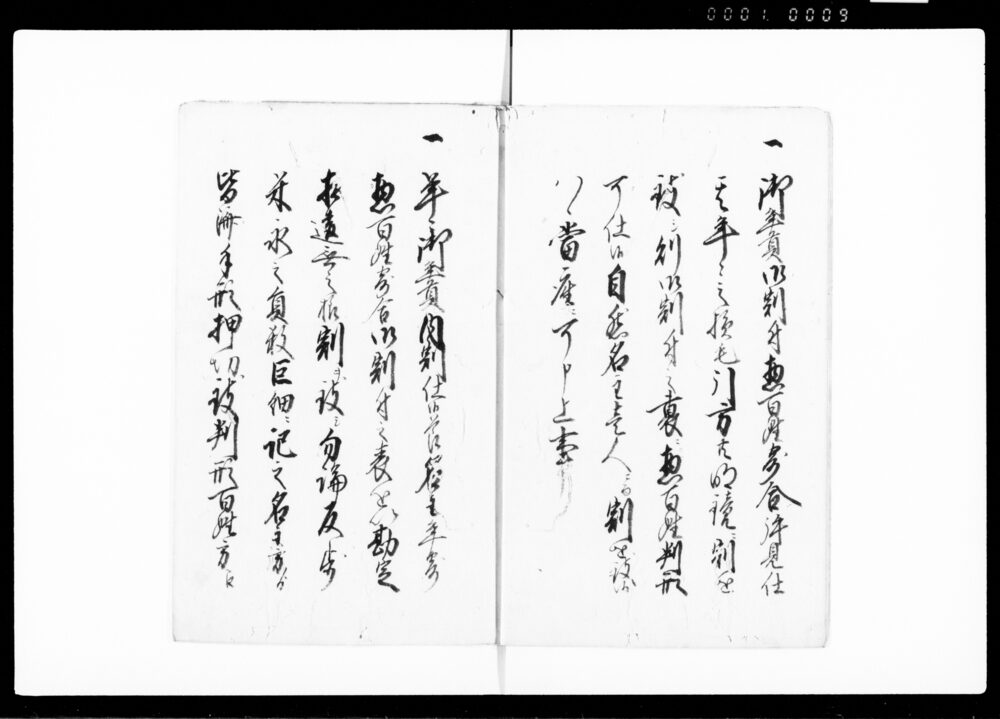 0001. 0009
一 御年貢御割付惣百姓寄合許見仕
其年々之損毛引方共明鏡ニ割を
致シ則御割付之裏ニ惣百姓判形
可仕候自然名主壱人ニ而割を致候
ハヽ當座ニ可申上事
一 年々御年貢内割仕候節名主年寄
惣百姓寄合御割付之表を以勘定
相違無之様割可致ニ勿論反歩
米永之員数巨細ニ記之名主方ゟ
皆済手形押切致判形百姓方江